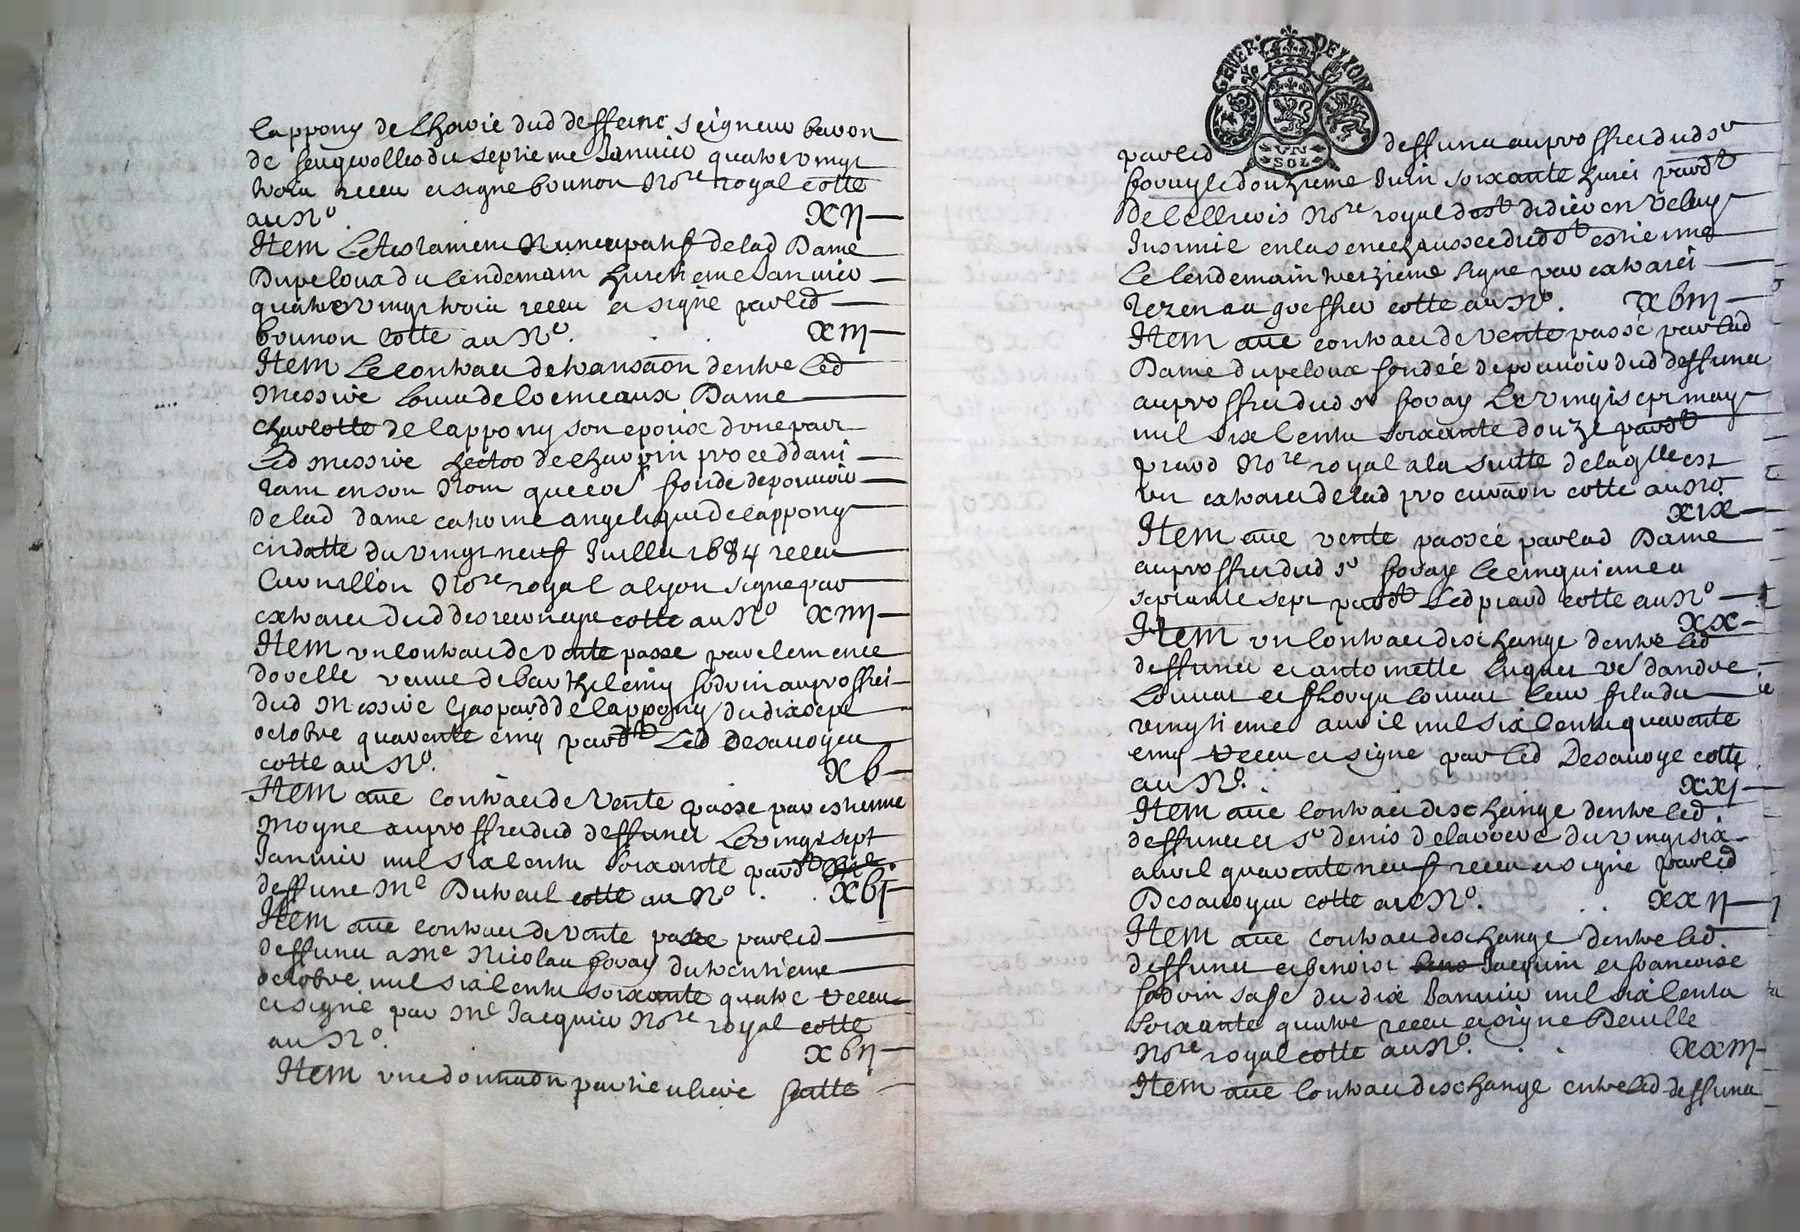 Cappony de lhorie dud deffunc seigneur baron
de feugerolles du septieme Janvier quatre vingt
trois receu et signe brunon No.re royal cotte
au No. XII
Item Le testament Nuncupatif de lad Dame
Dupeloux du lendemain huictieme Janvier
quatre vingt trois receu et signe par led
brunon Cotte au No. XIII
Item Le contract de transaon dentre Led
Messire Louis de Dame
charlotte de Cappony son epoux dune part
Led Messire hector de proceddant
tant en son Nom que coe fonde de pouvoir
de lad dame catrine angelique de cappony
en datte du vingt neuf Juillet 1684 receu
Cuvrillon No.re royal a lyon signe par
extraict dud desrecurieux cotte au No. XIIII
Item un Contract de vente passe par clemence
dovelle veuve de barthelemy fodrin au proffict
dud Messire Gaspard de Cappony du dix sept
octobre quarente cinq pardt Led Desavoyeu
cotte au No. XV
Item aue Contract de Vente passe par estienne
moyne au proffict dud deffunct Le vingt sept
Janvier mil six centz soixante pardt
deffunc Me Dutreul cotte au No. XVI
Item aue contract de vente passe par led
deffunct a Me Nicolas fovay du trentieme
octobre mil six centz soixante quatre receu
et signe par Me Jacquier No.re royal cotte
au No. XVII
Item une donnaon particuliere faitte
GENER. DE LYON
VN SOL
par led deffunct au proffict dud sr
fovay le douzieme Juin soixante huict pardt
De No.re royal dest didier en Velay
Insinuie en la senechaussee dud st estienne
Le lendemain treizieme signe par extraict
au greffier cotte au No. XVIII
Item aue contract de vente passé par lad
Dame dupeloux fondéé de pouvoir dud deffunct
au proffict dud sr fovay Le vingt sept may
mil six centz soixante douze pardt
praud No.re royal a la suitte de laqlle est
un extraict de lad procuraon cotte au No
XIX
Item aue vente passéé par lad Dame
au proffict dud sr fovay le cinquieme
septante sept pardt Led praud cotte au No.
XX
Item un Contract deschange dentre led
deffunct et antoinette ve dandre
Louvat et Louvat leur filz du
vingtieme avril mil six centz quarente
cinq receu et signe par led Desavoye cotte
au No. XXI
Item aue Contract deschange dentre led
deffunct et sr denis de du vingt six
avril quarente neuf receu et signe par led
Desavoyeu cotte au No. XXII
Item aue Contract deschange dentre led
deffunct et benoist Jacquin et francoise
fodrin sa fe du dix Janvier mil six centz
soixante quatre receu et signe Deville
No.re royal cotte au No. XXIII
Item aue Contract deschange entre led deffunct